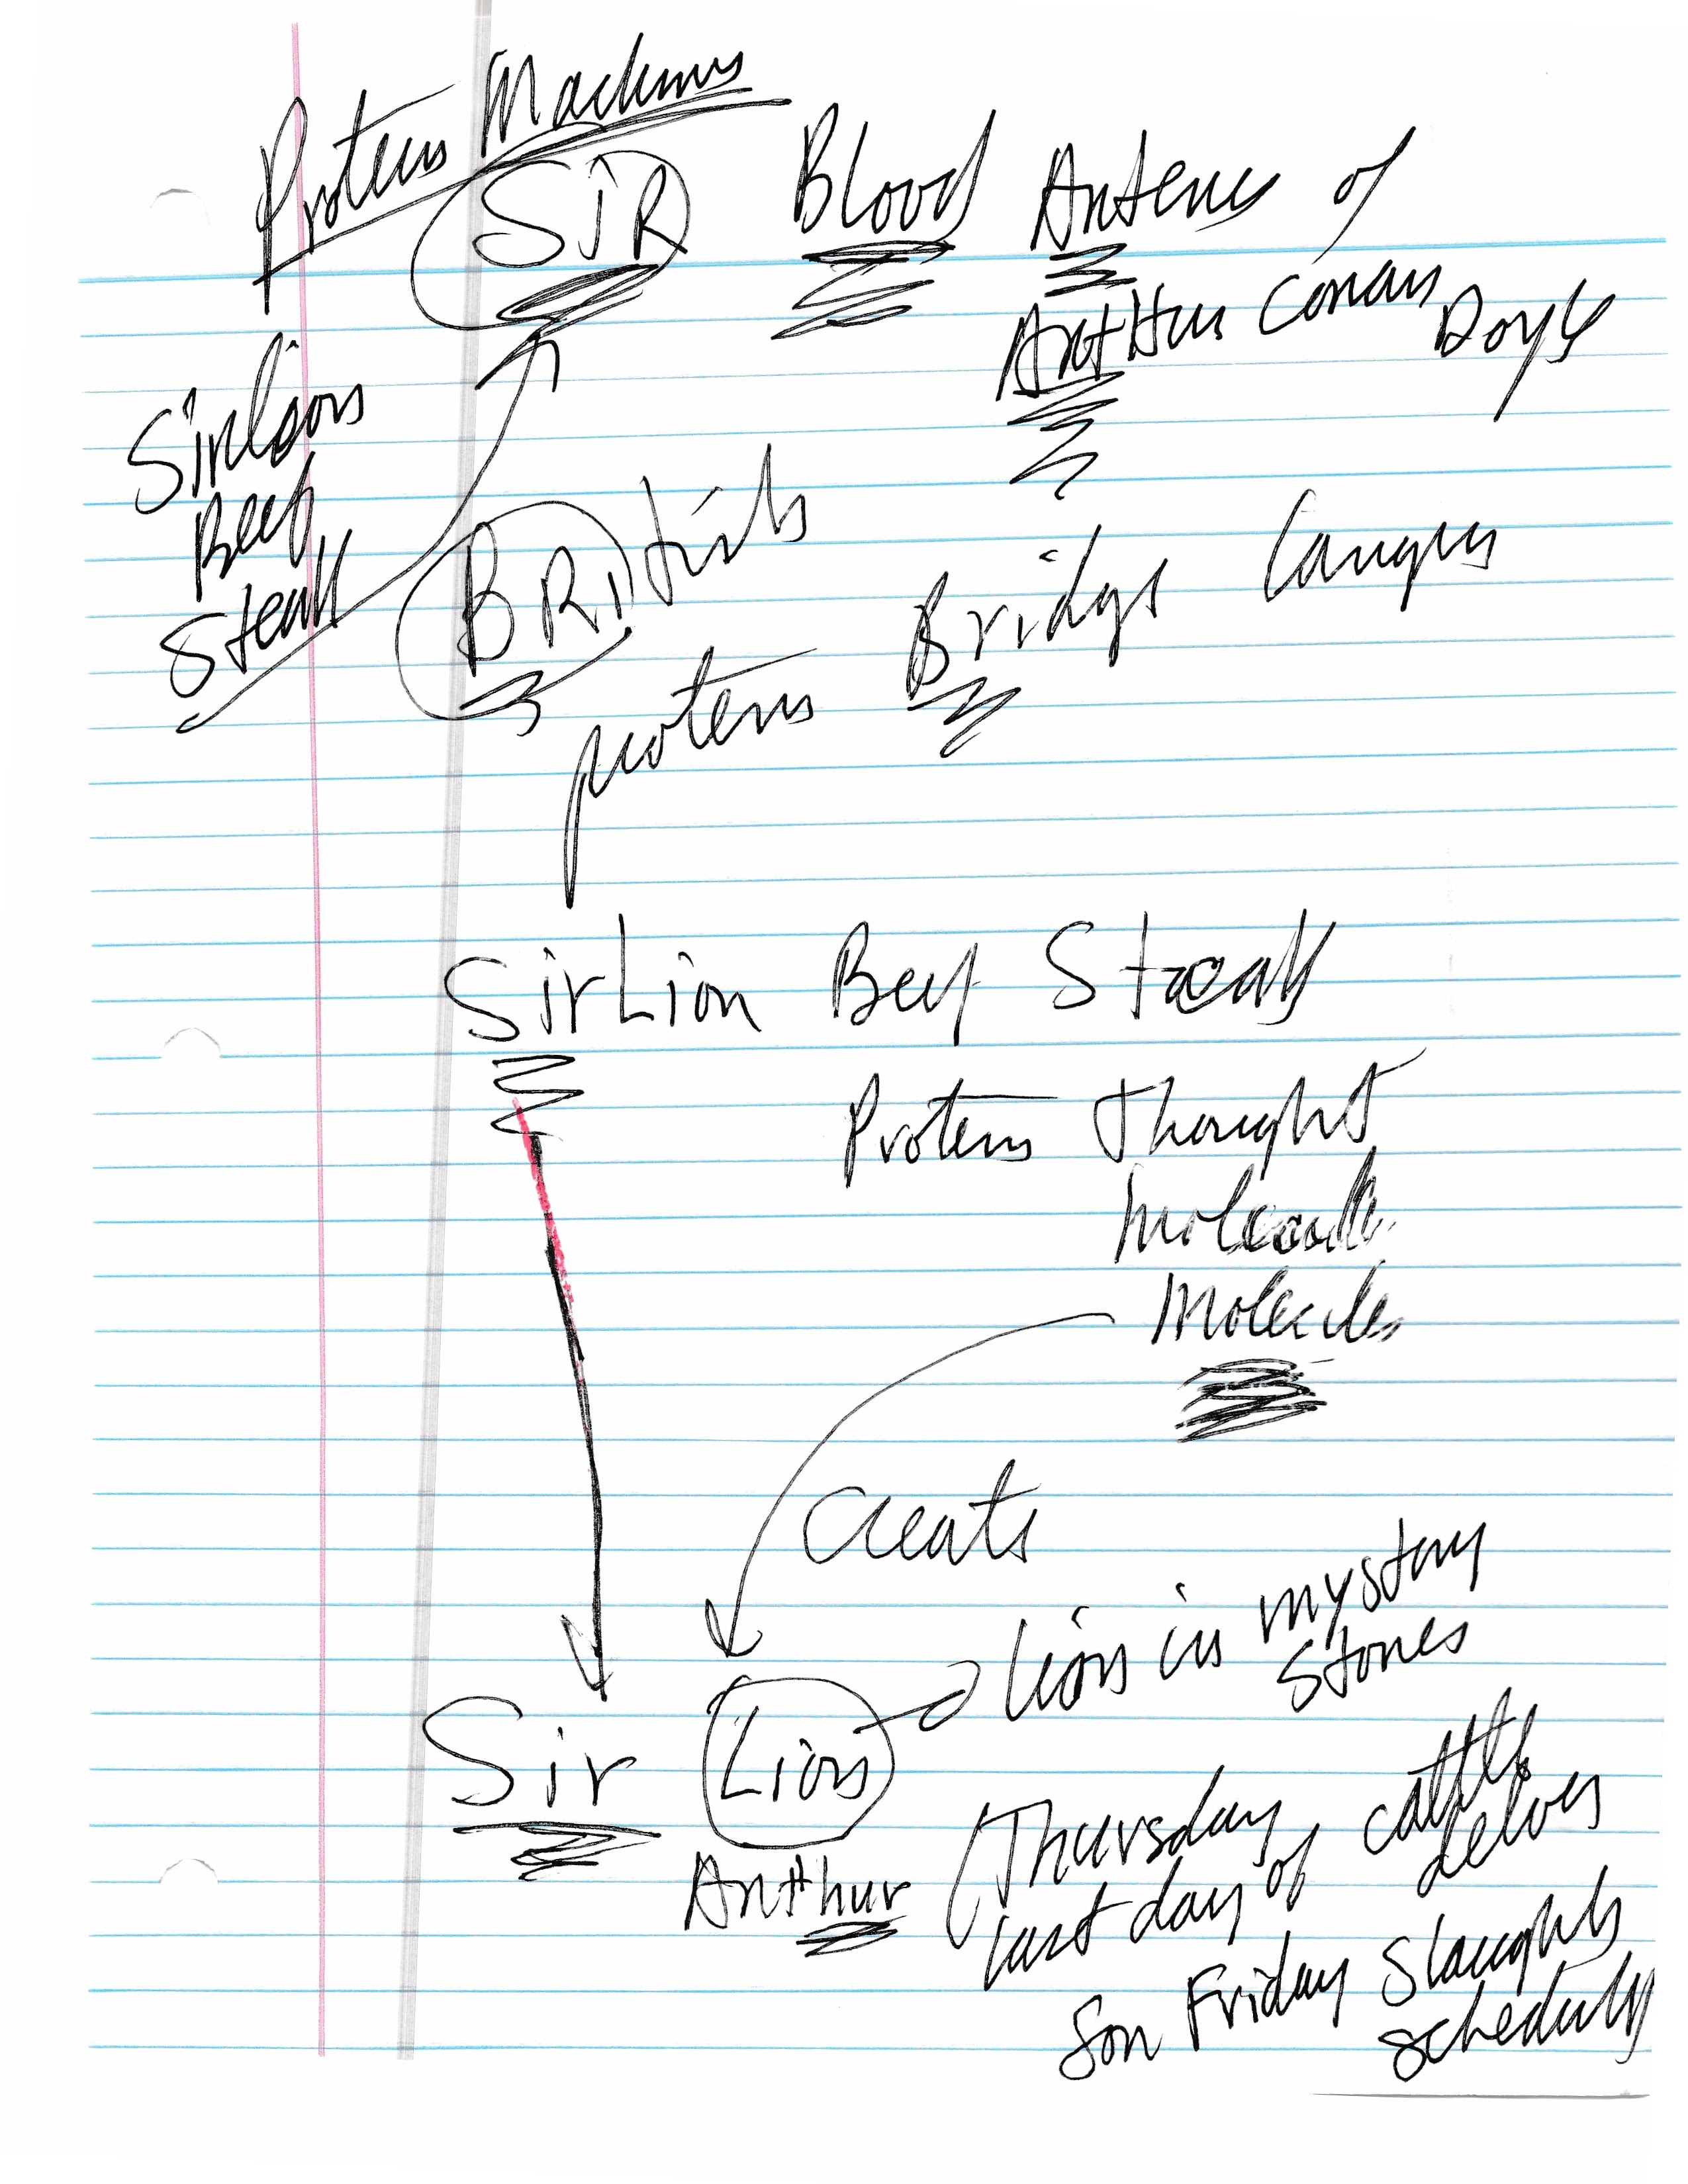 Protein Machines
SIR Blood Artery of
ArtHur Conan Doyle
Sirloin
Beef
Steak
BRitish
protein Bridge Langus
SirLion Beef Steak
Protein thought
molecule
molecules
creates
Sir Lion → lion in mystery
stories
Arthur (Thursday
last day of cattle
delvey
for Friday slaughter
schedule